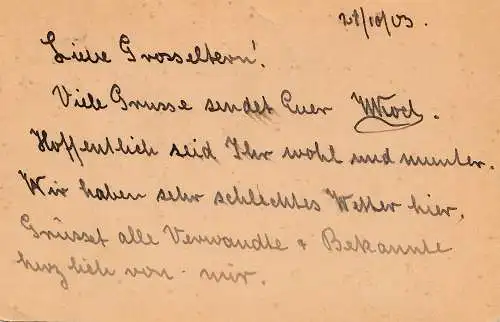 28/10/03.
Liebe Grosseltern!
Viele Grusse sendet Euer
Hoffentlich seid Ihr wohl und munter.
Wir haben sehr schlechtes Wetter hier.
Grüsset alle Verwandte + Bekannte
herzlich von mir.